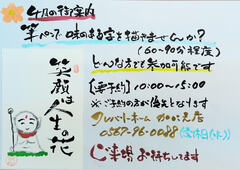 4月の御案内
筆ペンで味のある字を描きませんか?
(60~90分程度)
どんな方でも参加可能です
【要予約】 10:00~15:00
※ご予約の方が優先となります
クレバリーホーム
0567-96-0088
ご来場お待ちしてます
笑顔は
人生の花